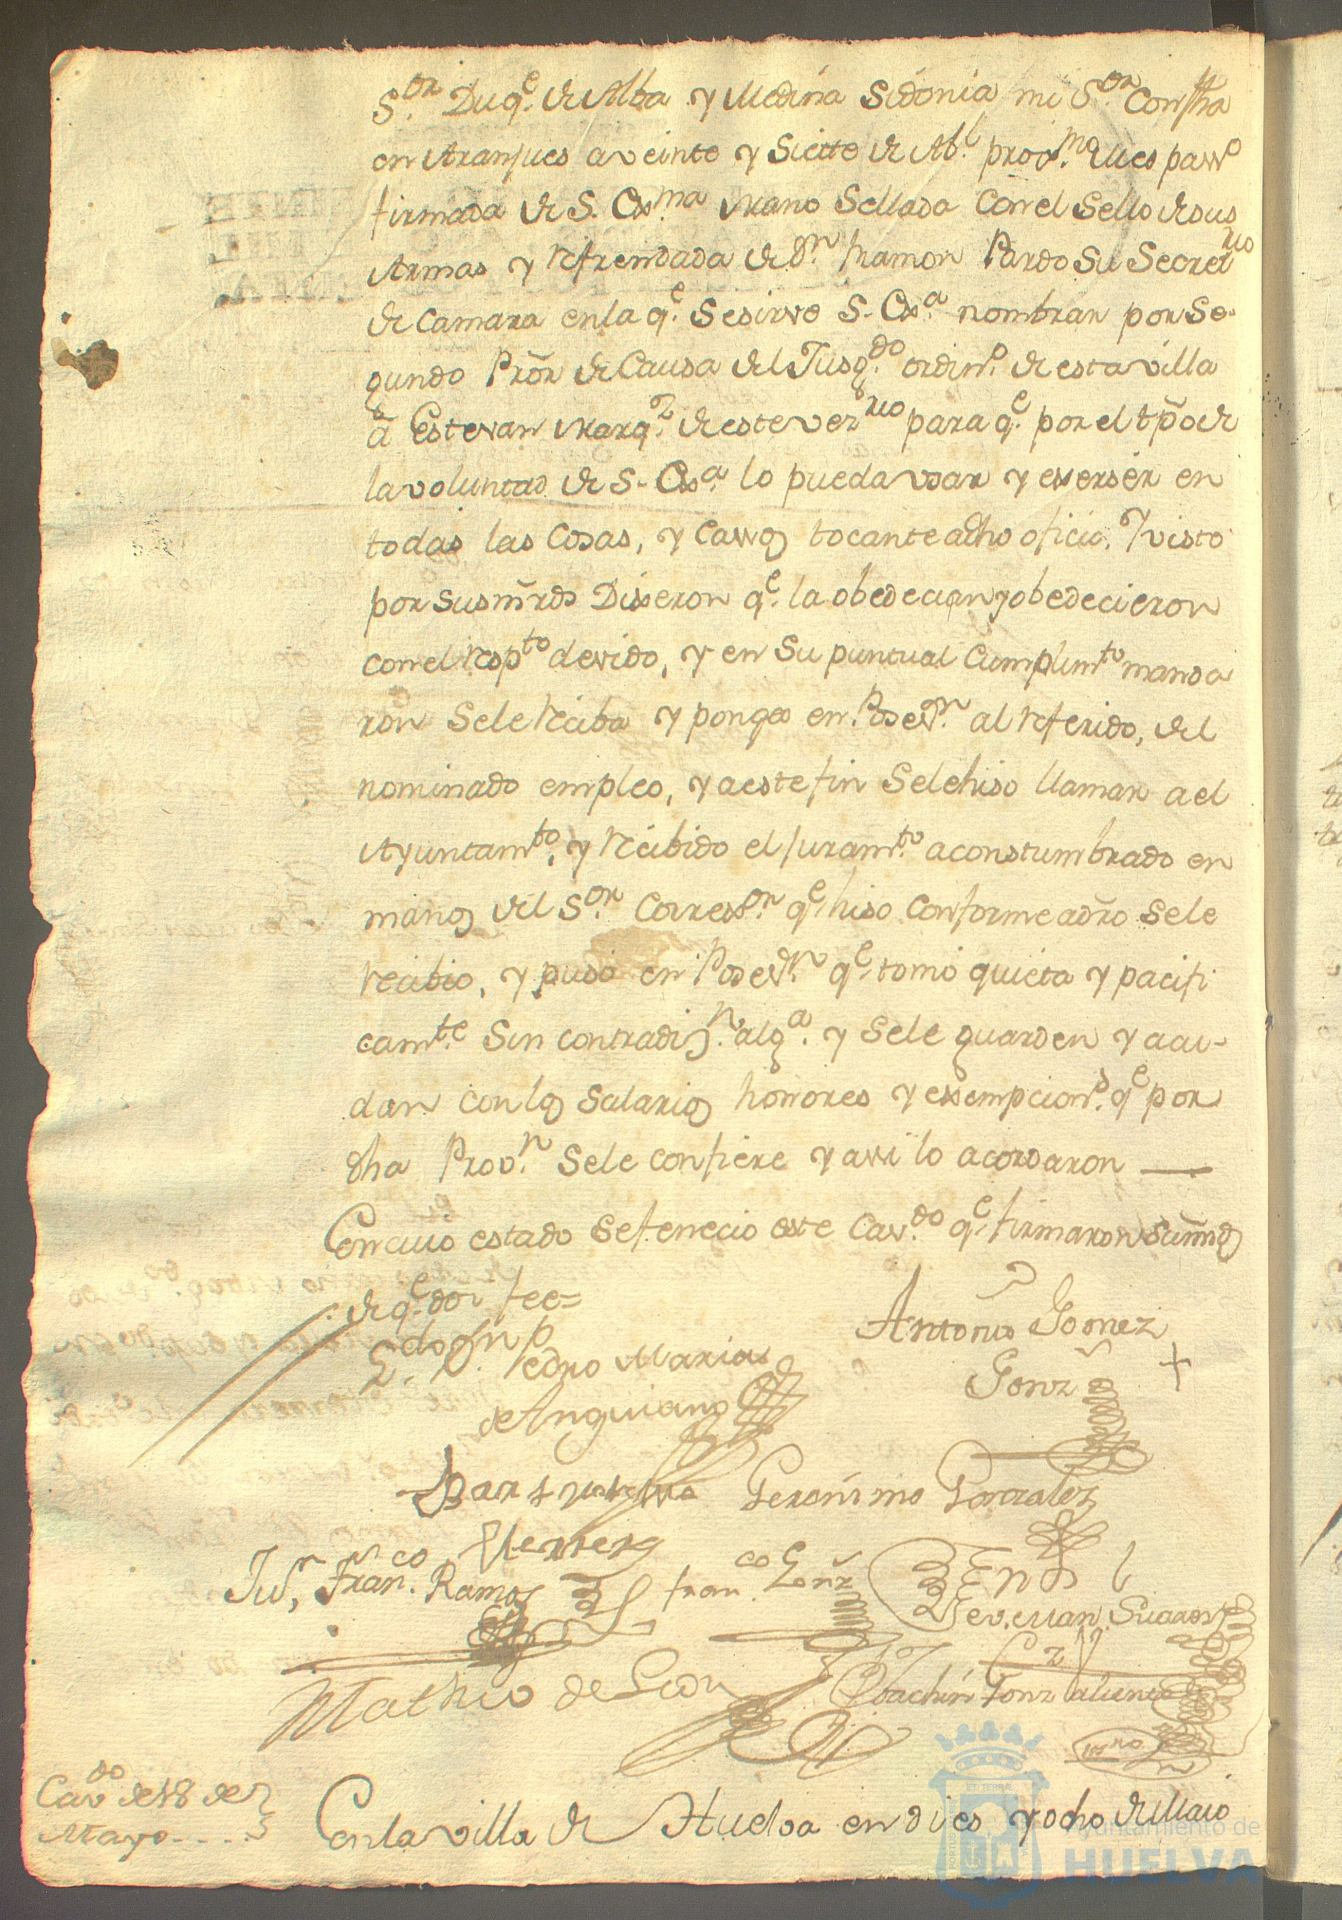 S.or Duq.e de Alba y Medina Sidonia mi S.or Con fha
en Aranjues a veinte y Siette de Ab.l prox.mo Mes pass.o
firmada de S. Ex.ma Mano Sellada Con el Sello de sus
Armas y Refrendada de d.n Ramon Pardo Su Secret.rio
de Camara en la q.e Se sirve S. Ex.a nombrar por Se-
gundo Prõr de Causa del Jusg.do ordin.o de esta villa
â Estevan Marq.z de este vez.rio para q.e por el tp̃o de
la voluntad de S. Ex.a lo pueda vsar y exerser en
todas las Cosas, y Cassos tocante a dho oficio. Y visto
por sus m̃rds Dixeron q.e la obedecian y obedecieron
con el Resp.to devido, y en Su puntual Cumplim.to manda
ron Se le Reciba y ponga en Poses.n al Referido, del
nominado empleo, y a este fin Se le hiso llamar a el
Ayuntam.to, y Recibido el Juram.to aconstumbrado en
manos del S.or Corres.or q.e hiso Conforme a dr̃o Se le
Recibio, y puso en Poses.n q.e tomó quieta y pacifi
cam.te Sin contradiz.n alg.a y Se le guarden y acu-
dan con los Salarios honores y exsempcion.s q.e por
dha Prov.n Se le confiere y assi lo acordaron
En cuio estado Se fenecio este Cav.do q.e firmaron Su m̃rds
de q.e doi fee=
Antonio Gomez
Gonz
Pedro Maria
de Anguiano
Geronimo Gonzalez
Ju.n Fran.co Ramos
Fran.co Gonz
Suarez
Mathio de Leon
Joachin Gonz Valiente
Cav.do de 18 de
Mayo
En la villa de Huelva en dies y ocho de Maio
Ayuntamiento de
HUELVA